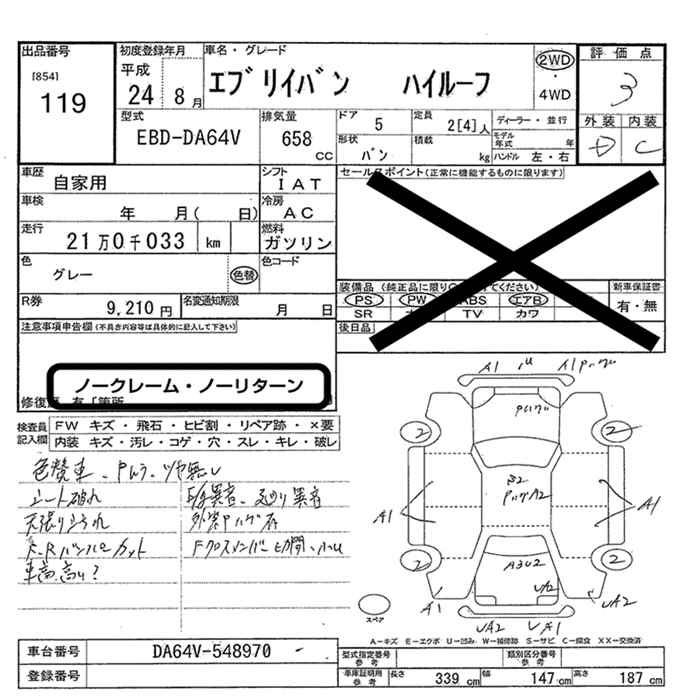 出品番号
[854]
119
初度登録年月
平成
24 8月
車名・グレード
エブリイバン ハイルーフ
2WD
・
4WD
評価点
3
外装 内装
D C
型式
EBD-DA64V
排気量
658
cc
ドア
5
定員
2[4]人
ディーラー・並行
形状
バン
積載
kg
モデル
年式 年
ハンドル 左・右
車歴
自家用
シフト
IAT
車検
年 月( 日)
冷房
AC
走行
21万0千033 km
燃料
ガソリン
色
グレー
色替
色コード
R券
9,210円
名変通知期限
月 日
セールスポイント(正常に機能するものに限ります)
装備品(純正品に限り
てください)
新車保証書
PS PW ABS エアB
有・無
SR TV カワ
後日品
注意事項申告欄(不具合内容等は具体的に記入して下さい)
ノークレーム・ノーリターン
検査員
記入欄
FW キズ・飛石・ヒビ割・リペア跡・×要
内装 キズ・汚レ・コゲ・穴・スレ・キレ・破レ
色替車
ツヤ無し
シート破れ
天張り
F.Rバンパーカット
車高高い?
異音
外装Pハゲ有
Fクロスメンバー
A1
A1
Pハゲ
2
2
A1
A1
PハゲA2
A3U2
2
2
A1
UA2
スペア
A-キズ E-エクボ U-凹み W-補修跡 S-サビ C-腐食 XX-交換済
車台番号
DA64V-548970
登録番号
型式指定番号
参考
類別区分番号
参考
車庫証明用
参考
長さ 339 cm 幅 147 cm 高さ 187 cm